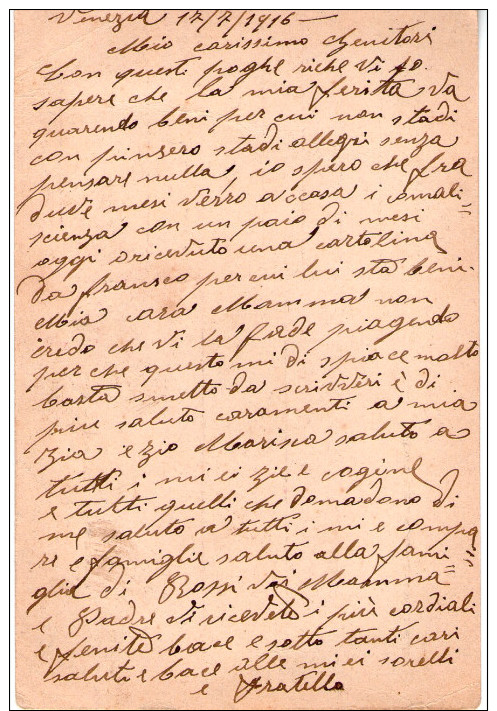 Venezia 17/7/1916 -
Mio carissimo Genitori
Con questi poghe riche vi fo
sapere che la mia ferita va
quarendo beni per cui non stadi
con pinsero stadi allegri senza
pensare nulla, io spero che fra
duve mesi verro a casa i convali=
scienza con un paio di mesi
oggi o riceuto una cartolina
da franseo per cui lui sta beni-
Mia cara Mamma non
credo che vi la fade piagendo
per che questo mi di spiace molto
basta smetto da scrivveri è di
piu saluto caramenti a mia
Zia e zio Marisca saluto a
tutti i mi ei zie e cogine
e tutti quelli che domadano di
me saluto a tutti i mi e compa
ri e famiglie saluto alla fami=
glia di Rossi voi Mamma
e Padre vi riceveto i più cordiali
e fenite bace e sotto tanti cari
saluti e bace alle mi ei sorelli
e Fratello